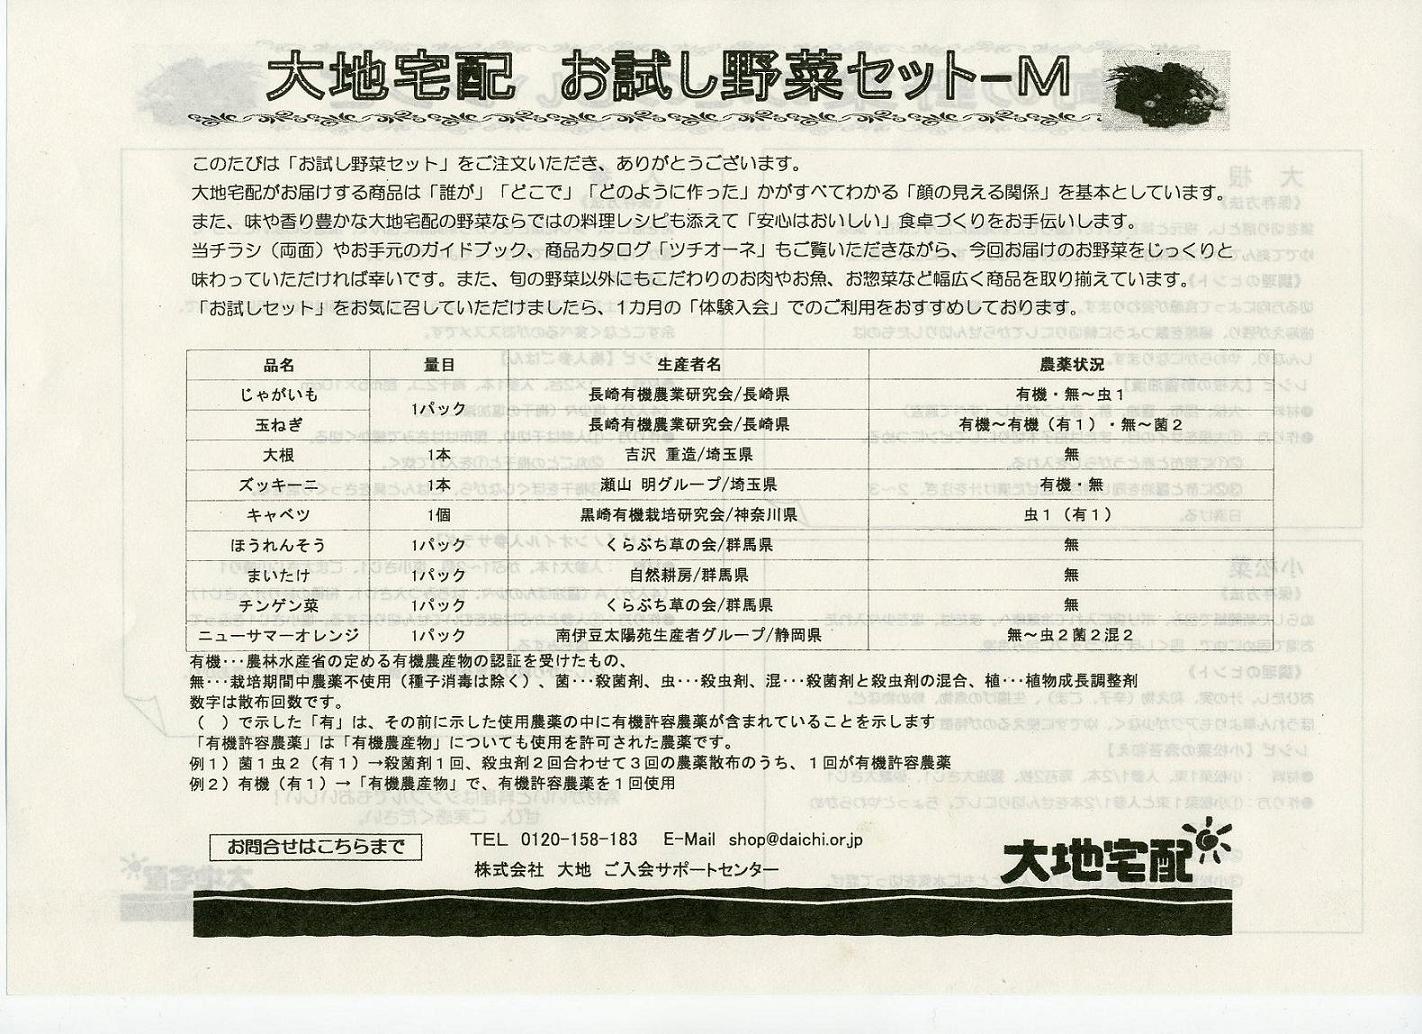 大地宅配　お試し野菜セットーM
このたびは「お試し野菜セット」をご注文いただき、ありがとうございます。
大地宅配がお届けする商品は「誰が」「どこで」「どのように作った」かがすべてわかる「顔の見える関係」を基本としています。
また、味や香り豊かな大地宅配の野菜ならではの料理レシピも添えて「安心はおいしい」食卓づくりをお手伝いします。
当チラシ（両面）やお手元のガイドブック、商品カタログ「ツチオーネ」もご覧いただきながら、今回お届けのお野菜をじっくりと
味わっていただければ幸いです。また、旬の野菜以外にもこだわりのお肉やお魚、お惣菜など幅広く商品を取り揃えています。
「お試しセット」をお気に召していただけましたら、1カ月の「体験入会」でのご利用をおすすめしております。
品名　量目　生産者名　農薬状況
じゃがいも　1パック　長崎有機農業研究会/長崎県　有機・無～虫１
玉ねぎ　長崎有機農業研究会/長崎県　有機～有機（有１）・無～菌２
大根　1本　吉沢 重造/埼玉県　無
ズッキーニ　1本　瀬山 明グループ/埼玉県　有機・無
キャベツ　1個　黒崎有機栽培研究会/神奈川県　虫１（有１）
ほうれんそう　1パック　くらぶち草の会/群馬県　無
まいたけ　1パック　自然耕房/群馬県　無
チンゲン菜　1パック　くらぶち草の会/群馬県　無
ニューサマーオレンジ　1パック　南伊豆太陽苑生産者グループ/静岡県　無～虫２菌２混２
有機･･･農林水産省の定める有機農産物の認証を受けたもの、
無･･･栽培期間中農薬不使用（種子消毒は除く）、菌･･･殺菌剤、虫･･･殺虫剤、混･･･殺菌剤と殺虫剤の混合、植･･･植物成長調整剤
数字は散布回数です。
（　）で示した「有」は、その前に示した使用農薬の中に有機許容農薬が含まれていることを示します
「有機許容農薬」は「有機農産物」についても使用を許可された農薬です。
例１）菌１虫２（有１）→殺菌剤１回、殺虫剤２回合わせて３回の農薬散布のうち、１回が有機許容農薬
例２）有機（有１）→「有機農産物」で、有機許容農薬を１回使用
お問合せはこちらまで
TEL 0120-158-183　E-Mail shop@daichi.or.jp
株式会社 大地 ご入会サポートセンター
大地宅配